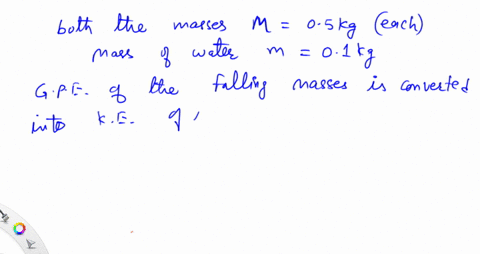 both the masses M = 0.5 kg (each)
mass of water m = 0.1 kg
G.P.E. of the falling masses is converted
into K.E. of